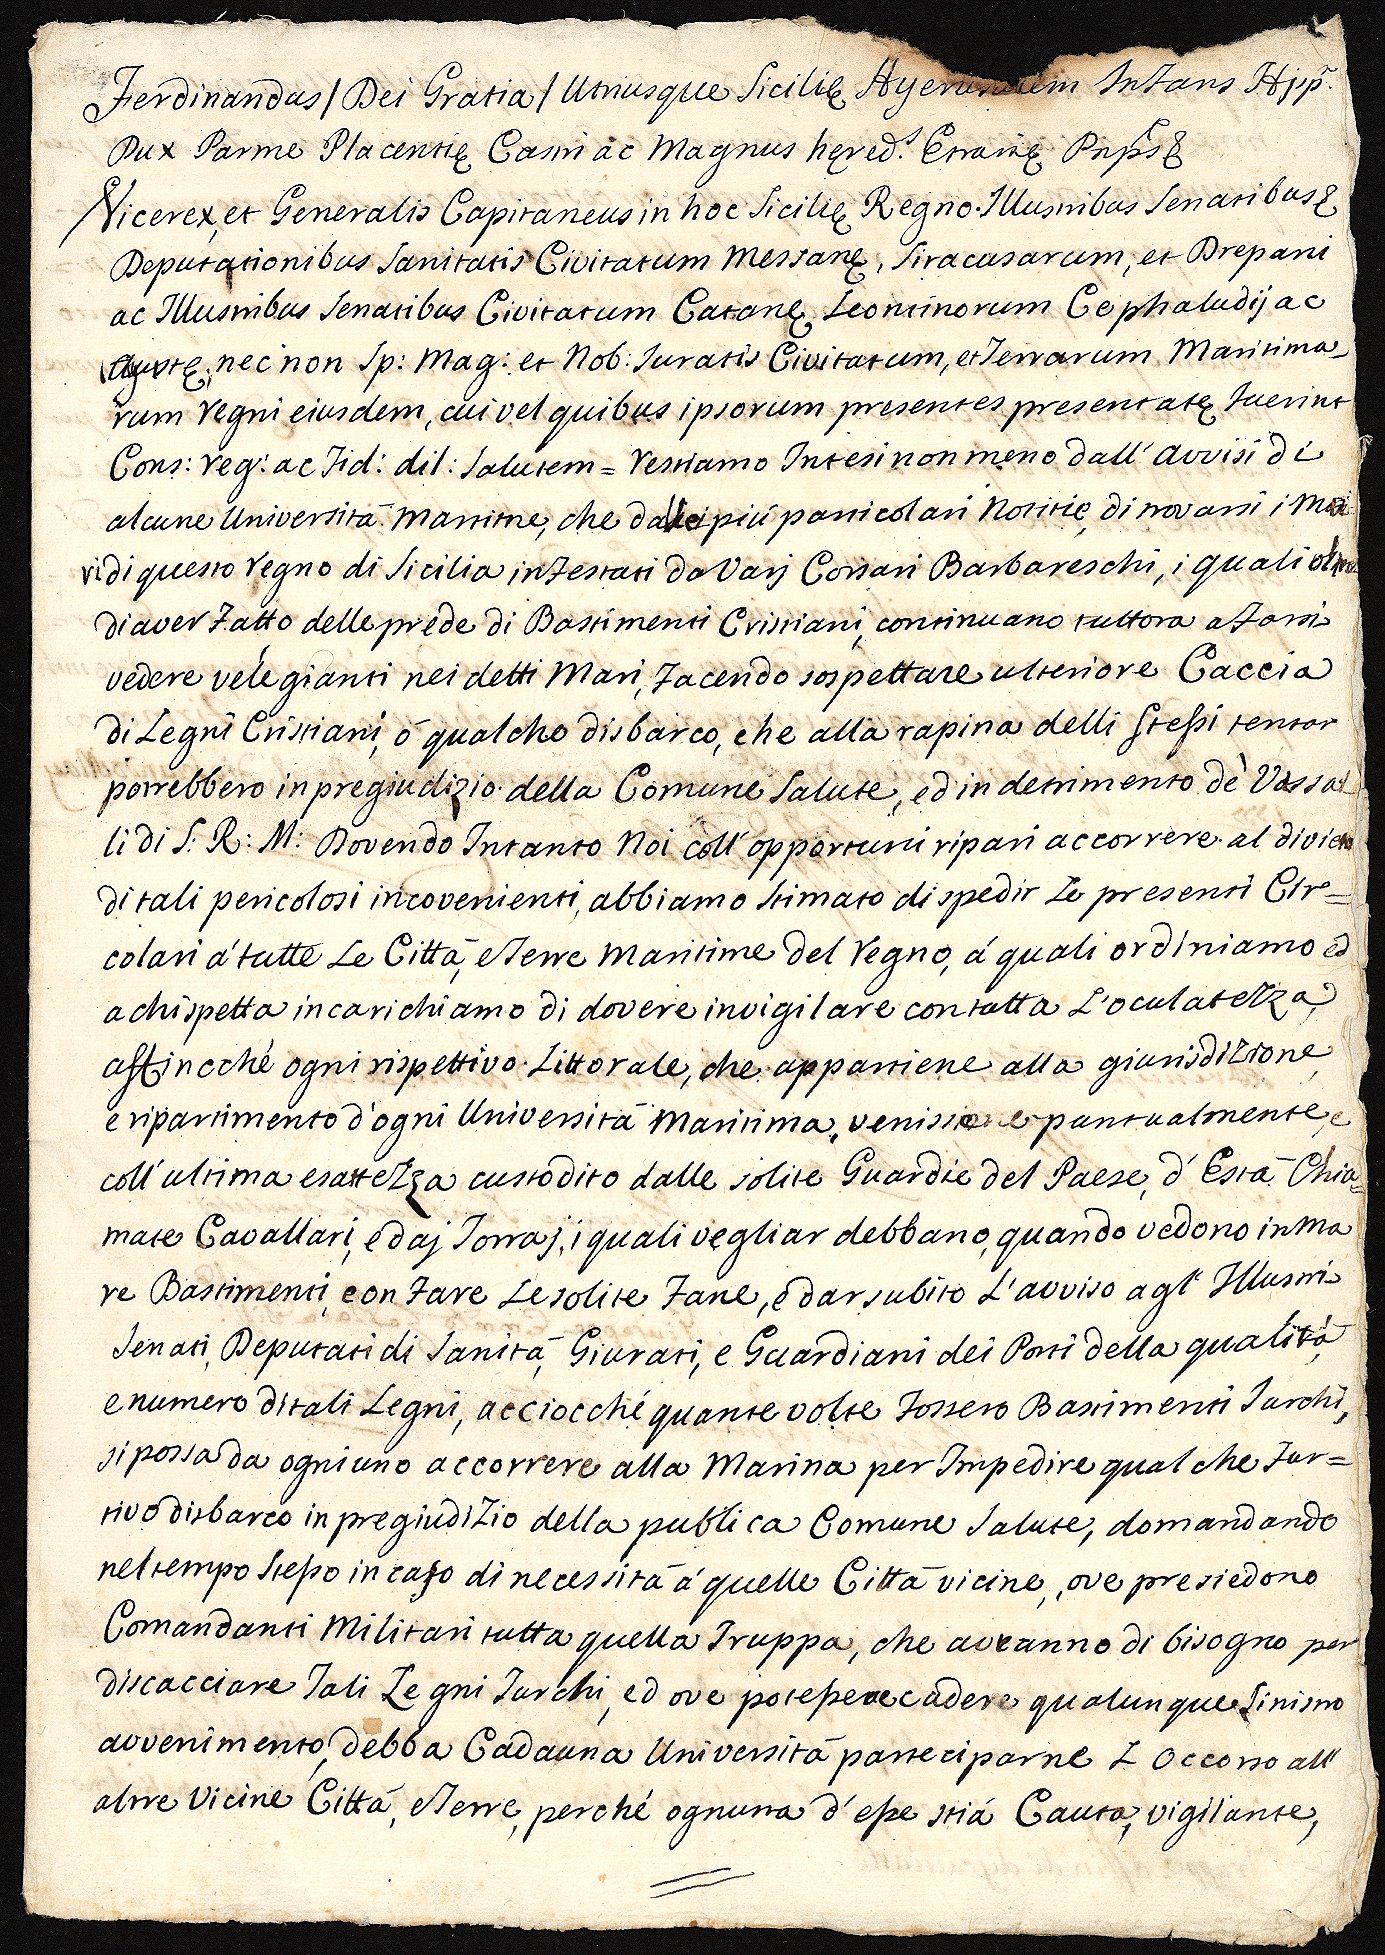 Ferdinandus / Dei Gratia / Utriusque Sicilię Hyerusalem Infans Hpp.
Dux Parme Placentię Castri ac Magnus hęred. Etrurię Pnps &
Vicerex, et Generalis Capitaneus in hoc Sicilię Regno. Illustribus Senatibus &
Deputationibus Sanitatis Civitatum Messanę, Siracusarum, et Drepani
ac Illustribus Senatibus Civitatum Catanę, Leontinorum Cephaludij ac
Agustę, nec non Sp: Mag: et Nob: Juratis Civitatum, et Terrarum Maritima_
rum regni eiusdem, cui vel quibus ipsorum presentes presentatę fuerint
Cons: reg: ac Fid: dil: Salutem = Restiamo Intesi non meno dall' avvisi di
alcune Università Maritme, che dalle più particolari Notitie, di trovarsi i Ma
ri di questo regno di Sicilia infestati da Varj Corsari Barbareschi, i quali oltre
di aver fatto delle prede di Bastimenti Cristiani, continuano tuttora a farsi
vedere velegianti nei detti Mari, facendo sospettare ulteriore Caccia
di Legni Cristiani, ò qualcho disbarco, che alla rapina delli Stessi tentar
potrebbero in pregiudizio della Comune Salute, ed in detrimento dè Vassal
li di S. R: M: Dovendo Intanto Noi coll' opportuni ripari accorrere al divieto
di tali pericolosi incovenienti, abbiamo stimato di spedir Le presenti Cir=
colari a' tutte Le Città, e Terre Maritime del regno, á quali ordiniamo ed
a chi spetta incarichiamo di dovere invigilare con tutta L'oculatezza,
affincchè ogni rispettivo Littorale, che appartiene alla giurisdizione,
e ripartimento d'ogni Università Maritima, venisse puntualmente, e
coll' ultima esattezza custodito dalle solite Guardie del Paese, d' Està Chia=
mate Cavallari, e daj Torraj, i quali vegliar debbano, quando vedono in Ma
re Bastimenti, con fare Le solite Fane, e dar subito L'avviso agl' Illustri
Senati, Deputati di Sanità, Giurati, e Guardiani dei Porti della qualità,
e numero di tali Legni, acciocché quante volte fossero Bastimenti Turchi,
si possa da ogniuno accorrere alla Marina per Impedire qualche fur=
tivo disbarco in pregiudizio della publica Comune Salute, domandando
nel tempo Stesso in caso di necessità a' quelle Città vicine, ove presiedono
Comandanti Militari tutta quella Truppa, che avranno di bisogno per
discacciare Tali Legni Turchi, ed ove potesse accadere qualunque Sinistro
avvenimento, debba Cadauna Università parteciparne L'Occorso all'
altre Vicine Città, e Terre, perché ognuna d'esse stiá Cauta, vigilante,